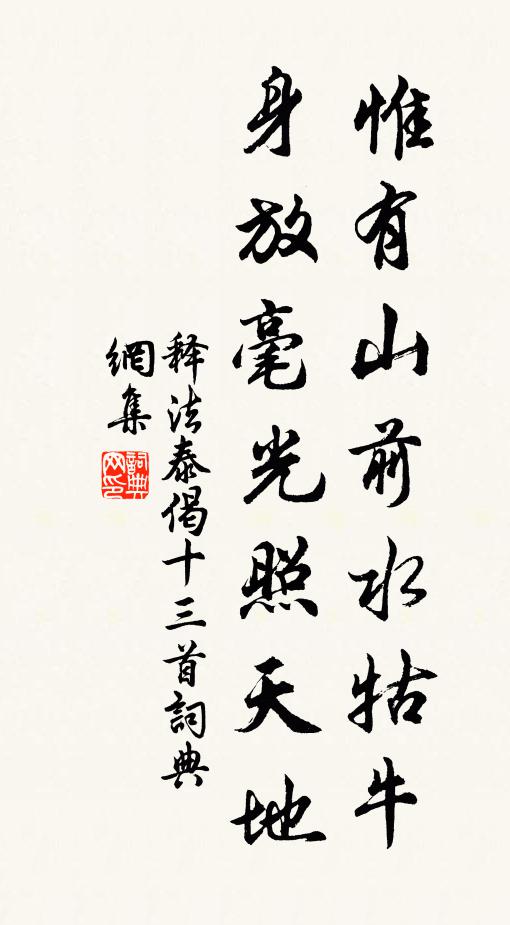 惟有山前水牯牛
身放毫光照天地
释法泰偈十三首詞典
網集
詞典
网印